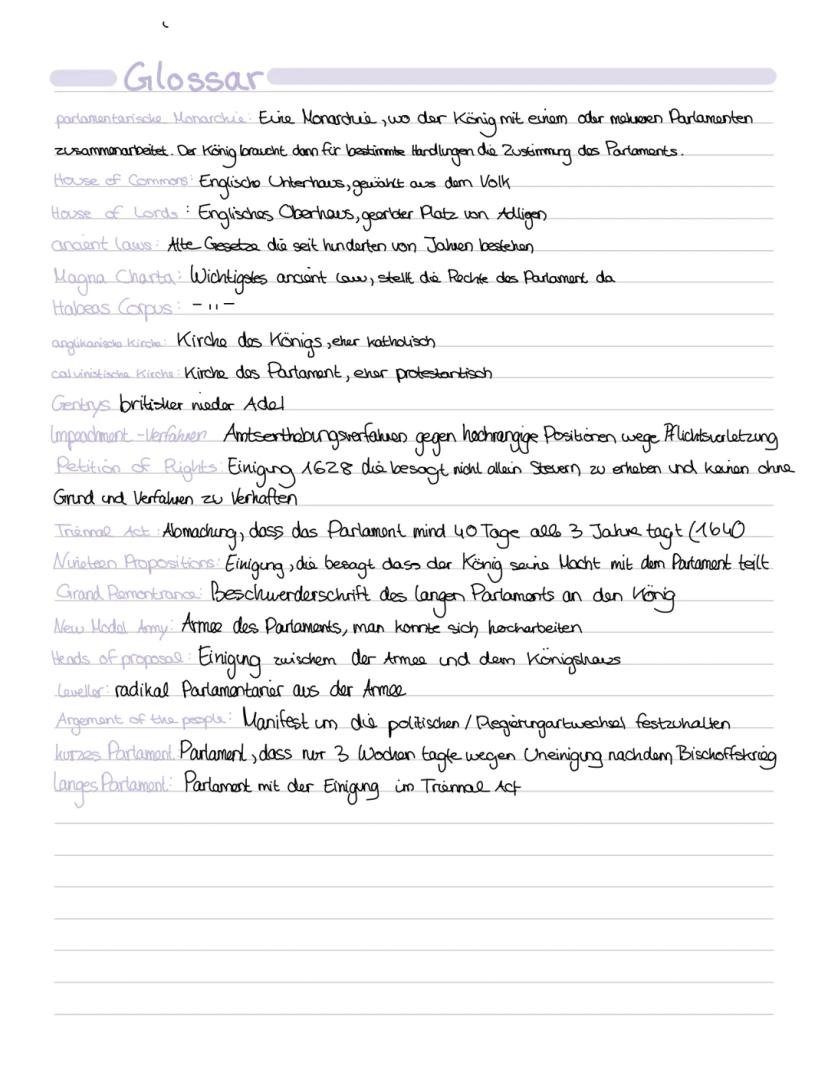 Glossar
parlamentarische Monarchie: Eine Monarchie, wo der König mit einem oder mehreren Parlamenten
zusammenarbeitet. Der König braucht dann für bestimmte Handlungen die Zustimmung des Parlaments.
House of Commons: Englische Unterhaus, gewählt aus dem Volk
House of Lords: Englisches Oberhaus, georbter Platz von Adligen
ancient laws: Alte Gesetze die seit hunderten von Jahren bestehen
Magna Charta: Wichtigstes ancient law, stellt die Rechte des Parlament da
Habeas Corpus: -"-
anglikanische Kirche: Kirche des Königs, eher katholisch
calvinistische Kirche: Kirche des Parlament, eher protestantisch
Gentrys britischer nieder Adel
Impeachment-Verfahren Amtsenthebungsverfahren gegen hochrangige Positionen wege Pflichtsverletzung
Petition of Rights: Einigung 1628 die besagt nicht allein Steuern zu erheben und keinen ohne
Grund und Verfahren zu Verhaften
Triennal Act: Abmachung, dass das Parlament mind 40 Tage alle 3 Jahre tagt (1640
Nineteen Propositions: Einigung, die besagt dass der König seine Macht mit dem Parlament teilt
Grand Remontrance: Beschwerderschrift des langen Parlaments an den König
New Model Army: Armee des Parlaments, man konnte sich hocharbeiten
Heads of proposal: Einigung zwischem der Armee und dem Königshaus
Leveller: radikal Parlamentarier aus der Armee
Argement of the people: Manifest um die politischen / Regierungartwechsel festzuhalten
kurzes Parlament Parlament, dass nur 3 Wochen tagte wegen Uneinigung nachdem Bischoffskrieg
langes Parlament: Parlament mit der Einigung im Triennal Act